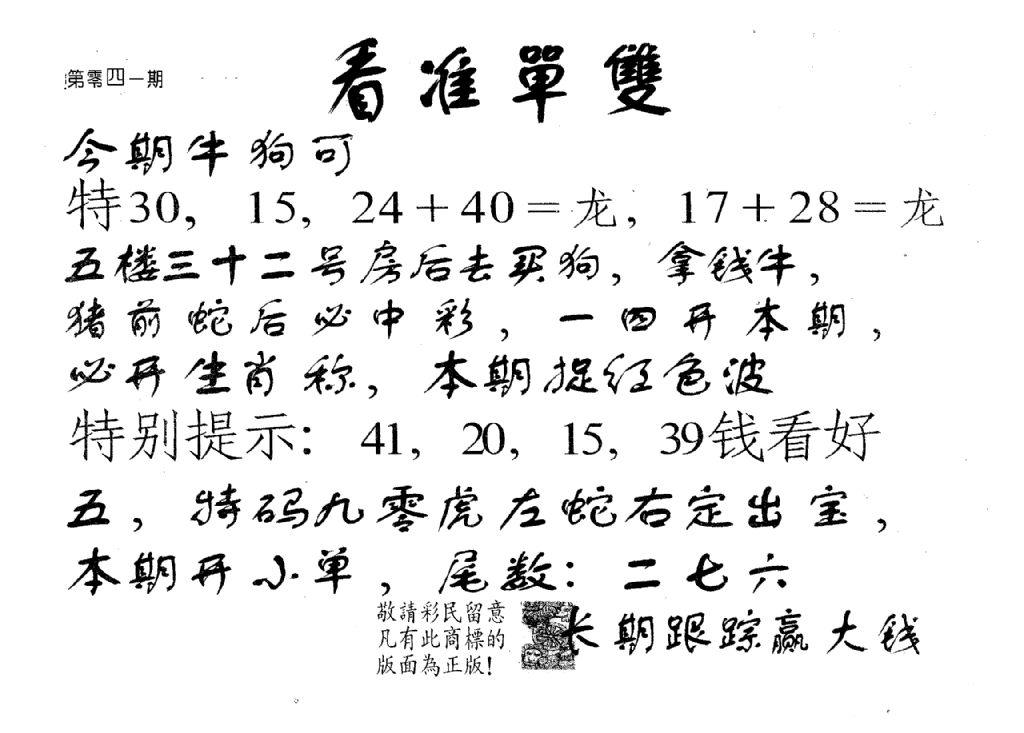 第零四一期
看准單雙
今期牛狗可
特30, 15, 24+40=龙, 17+28=龙
五楼三十二号房后去买狗, 拿钱牛,
猪前蛇后必中彩, 一四开本期,
必开生肖称, 本期捉红色波
特别提示: 41, 20, 15, 39钱看好
五, 特码九零虎左蛇右定出宝,
本期开小单, 尾数: 二七六
敬請彩民留意
凡有此商標的
版面為正版!
长期跟踪赢大钱